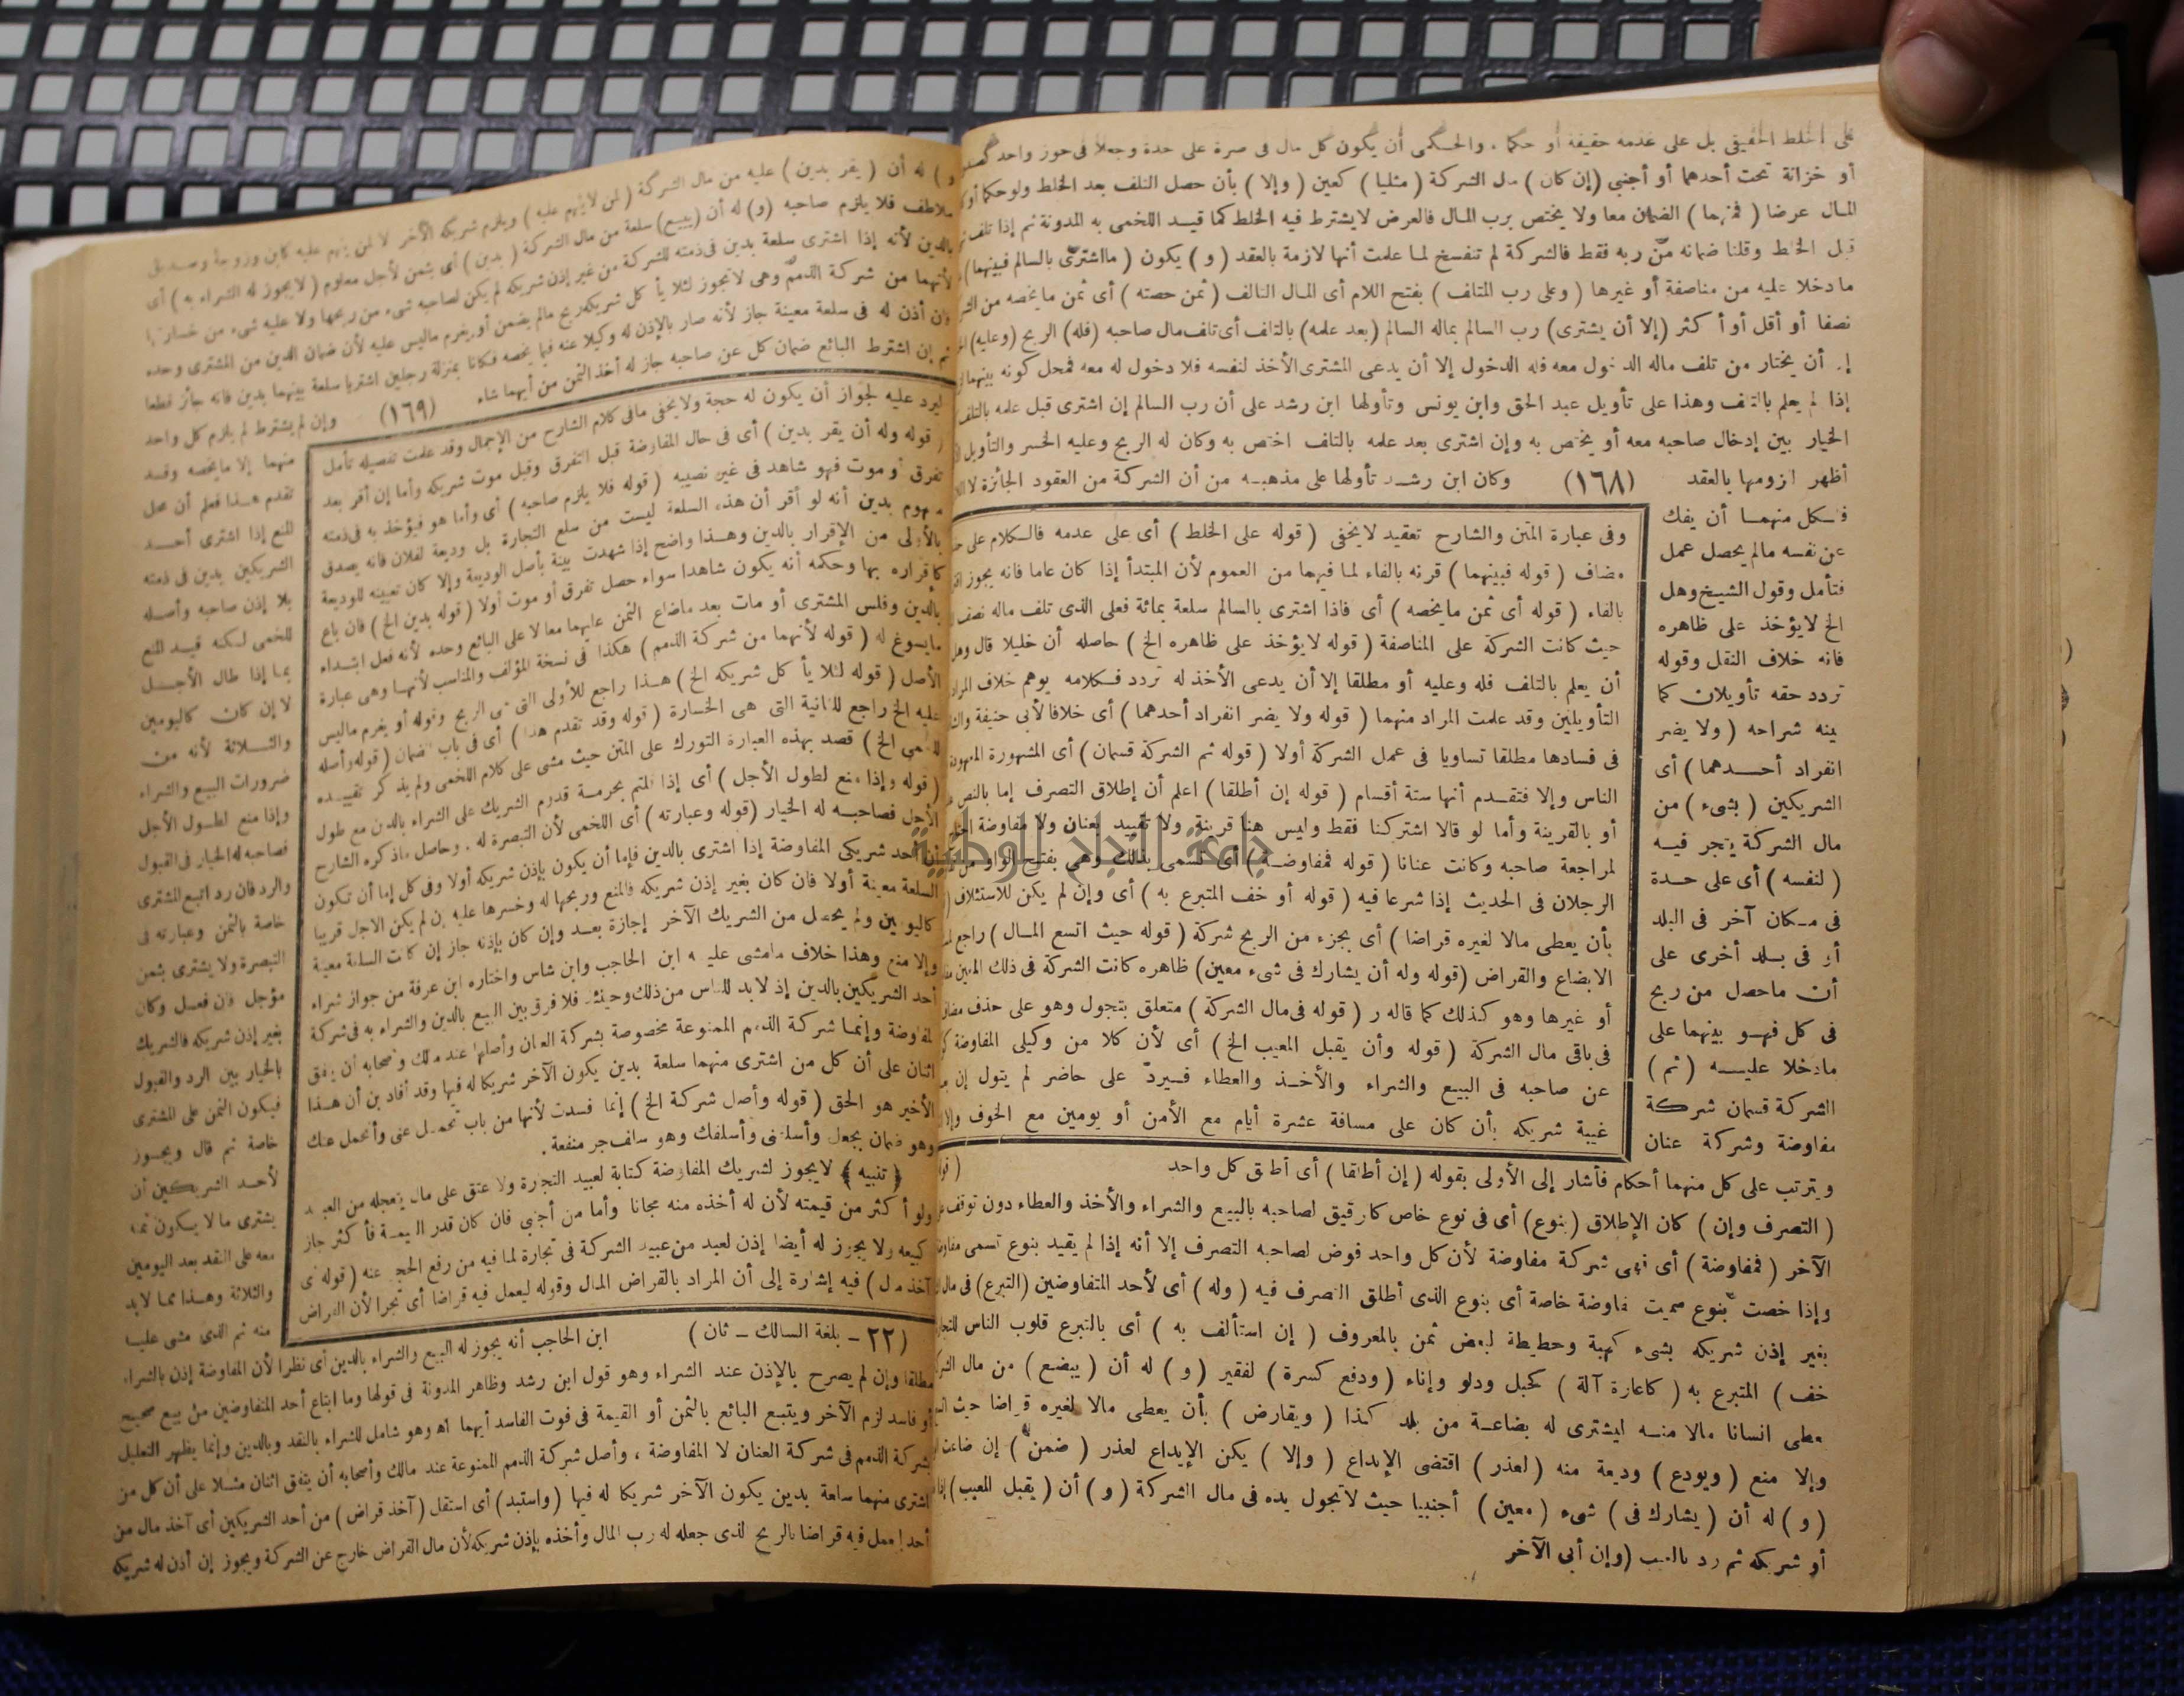 على الخلط الحقيقى بل على عدمه حقيقة أو حكما . والحكمى أن يكون كل مال فى صرة على حدة وجعلا فى حوز واحد
أو خزانة تحت أحدهما أو أجنبي (إن كان) مال الشركة (مثليا) كعين (وإلا) بأن حصل التلف بعد الخلط ولو حكما
المال عرضا (فمنهما) الضمان معا ولا يختص برب المال فالعرض لا يشترط فيه الخلط كما قيد اللخمى به المدونة ثم إذا تلف
قبل الخلط وقلنا ضمانه من ربه فقط فالشركة لم تنفسخ لما علمت أنها لازمة بالعقد (و) يكون (ما اشترى بالسالم فبينهما)
ما دخلا عليه من مناصفة أو غيرها (وعلى رب المتلف) بفتح اللام أى المال التالف (ثمن حصته) أى ثمن ما يخصه من
نصفا أو أقل أو أكثر (إلا أن يشترى) رب السالم بماله السالم (بعد علمه) بالتلف أى تلف مال صاحبه (فله) الربح (وعليه)
أن يختار من تلف ماله الدخول معه فله الدخول إلا أن يدعى المشترى الأخذ لنفسه فلا دخول له معه فمحل كونه بينهما
إذا لم يعلم بالتلف وهذا على تأويل عبد الحق وابن يونس وتأولها ابن رشد على أن رب السالم إن اشترى قبل علمه بالتلف
الخيار بين إدخال صاحبه معه أو يختص به وإن اشترى بعد علمه بالتلف اختص به وكان له الربح وعليه الخسر والتأويل
أظهر لزومها بالعقد (١٦٨) وكان ابن رشد تأولها على مذهبه من أن الشركة من العقود الجائزة
فلكل منهما أن يفك
عن نفسه مالم يحصل عمل
فتأمل وقول الشيخ وهل
الخ لا يؤخذ على ظاهره
فانه خلاف النقل وقوله
تردد حقه تأويلان كما
بينه شراحه (ولا يضر
انفراد أحدهما) أى
الشريكين (بشىء) من
مال الشركة يتجر فيه
(لنفسه) أى على حدة
فى مكان آخر فى البلد
أو فى بلد أخرى على
أن ماحصل من ربح
فى كل فهو بينهما على
مادخلا عليه (ثم)
الشركة قسمان شركة
مفاوضة وشركة عنان
وفى عبارة المتن والشارح تعقيد لا يخفى (قوله على الخلط) أى على عدمه فالكلام على
مضاف (قوله فبينهما) قرنه بالفاء لما فيهما من العموم لأن المبتدأ إذا كان عاما فانه يجوز
بالفاء (قوله أى ثمن ما يخصه) أى فاذا اشترى بالسالم سلعة بمائة فعلى الذى تلف ماله نصف
حيث كانت الشركة على المناصفة (قوله لا يؤخذ على ظاهره الخ) حاصله أن خليلا قال وهل
أن يعلم بالتلف فله وعليه أو مطلقا إلا أن يدعى الأخذ له تردد فكلامه يوهم خلاف المراد
التأويلين وقد علمت المراد منهما (قوله ولا يضر انفراد أحدهما) أى خلافا لأبى حنيفة
فى فسادها مطلقا تساويا فى عمل الشركة أولا (قوله ثم الشركة قسمان) أى المشهورة
الناس وإلا فتقدم أنها ستة أقسام (قوله إن أطلقا) اعلم أن إطلاق التصرف إما بالنص
أو بالقرينة وأما لو قالا اشتركنا فقط وليس هنا قرينة ولا تقييد بعنان ولا مفاوضة
لمراجعة صاحبه وكانت عنانا (قوله فمفاوضة) أى فتسمى بذلك وهى بفتح الواو من
الرجلان فى الحديث إذا شرعا فيه (قوله أو خف المتبرع به) أى وإن لم يكن للاستئلاف
بأن يعطى مالا لغيره قراضا) أى بجزء من الربح شركة (قوله حيث اتسع المال) راجع
الابضاع والقراض (قوله وله أن يشارك فى شىء معين) ظاهره كانت الشركة فى ذلك المعين
أو غيرها وهو كذلك كما قاله ر (قوله فى مال الشركة) متعلق بتجول وهو على حذف
فى باقى مال الشركة (قوله وأن يقبل المعيب الخ) أى لأن كلا من وكيلى المفاوضة
عن صاحبه فى البيع والشراء والأخذ والعطاء فيرد على حاضر لم يتول إن
غيبة شريكه بأن كان على مسافة عشرة أيام مع الأمن أو يومين مع الخوف
ويترتب على كل منهما أحكام فأشار إلى الأولى بقوله (إن أطلقا) أى أطلق كل واحد
(التصرف وإن) كان الإطلاق (بنوع) أى فى نوع خاص كالرقيق لصاحبه بالبيع والشراء والأخذ والعطاء دون توقف
الآخر (فمفاوضة) أى فهى شركة مفاوضة لأن كل واحد فوض لصاحبه التصرف إلا أنه إذا لم يقيد بنوع تسمى
وإذا خصت بنوع سميت مفاوضة خاصة أى بنوع الذى أطلق التصرف فيه (وله) أى لأحد المتفاوضين (التبرع) فى مال
بغير إذن شريكه بشىء كهبة وحطيطة لبعض ثمن بالمعروف (إن استألف به) أى بالتبرع قلوب الناس
خف) المتبرع به (كاعارة آلة) كحبل ودلو وإناء (ودفع كسرة) لفقير (و) له أن (يبضع) من مال
يعطى انسانا مالا منه ليشترى له بضاعة من بلد كذا (ويقارض) بأن يعطى مالا لغيره قراضا حيث
وإلا منع (ويودع) وديعة منه (لعذر) اقتضى الإيداع (وإلا) يكن الإيداع لعذر (ضمن) إن ضاعت
(و) له أن (يشارك فى) شىء (معين) أجنبيا حيث لا تجول يده فى مال الشركة (و) أن (يقبل المعيب)
أو شريكه ثم رد بالعيب (وإن أبى الآخر
و) له أن (يقر بدين) عليه من مال الشركة (لمن لا يتهم عليه) ويلزم شريكه الآخر لا لمن يتهم عليه كابن وزوجة وصديق
ملاطف فلا يلزم صاحبه (و) له أن (يبيع) سلعة من مال الشركة (بدين) أى بثمن لأجل معلوم (لا يجوز له الشراء به) أى
بالدين لأنه إذا اشترى سلعة بدين فى ذمته للشركة من غير إذن شريكه لم يكن لصاحبه شىء من ربحها ولا عليه شىء من خسارتها
لأنهما من شركة الذمم وهى لا تجوز لئلا يأكل شريكه ربح مالم يضمن أو يغرم ماليس عليه لأن ضمان الدين من المشترى وحده
وإن أذن له فى سلعة معينة جاز لأنه صار بالإذن له وكيلا عنه فيما يخصه فكانا بمنزلة رجلين اشتريا سلعة بينهما بدين فانه جائز قطعا
ثم إن اشترط البائع ضمان كل عن صاحبه جاز له أخذ الثمن من أيهما شاء (١٦٩) وإن لم يشترط لم يلزم كل واحد
منهما إلا ما يخصه وقد
تقدم هذا فعلم أن محل
المنع إذا اشترى أحد
الشريكين بدين فى ذمته
بلا إذن صاحبه وأصله
للخمى لكنه قيد المنع
بما إذا طال الأجل
لا إن كان كاليومين
والثلاثة لأنه من
ضرورات البيع والشراء
وإذا منع لطول الأجل
فصاحبه له الخيار فى القبول
والرد فان رد اتبع المشترى
خاصة بالثمن وعبارته فى
التبصرة ولا يشترى بثمن
مؤجل فان فعل وكان
بغير إذن شريكه فالشريك
بالخيار بين الرد والقبول
فيكون الثمن على المشترى
خاصة ثم قال ويجوز
لأحد الشريكين أن
يشترى ما لا يكون ثمنه
معه على النقد بعد اليومين
والثلاثة وهذا مما لابد
منه ثم الذى مشى عليه
ليرد عليه لجواز أن يكون له حجة ولا يخفى مافى كلام الشارح من الإجمال وقد علمت تفصيله تأمل
(قوله وله أن يقر بدين) أى فى حال المفاوضة قبل التفرق وقبل موت شريكه وأما إن أقر بعد
تفرق أو موت فهو شاهد فى غير نصيبه (قوله فلا يلزم صاحبه) أى وأما هو فيؤخذ به فى ذمته
مفهوم بدين أنه لو أقر أن هذه السلعة ليست من سلع التجارة بل وديعة لفلان فانه يصدق
بالأولى من الإقرار بالدين وهذا واضح إذا شهدت بينة بأصل الوديعة وإلا كان تعيينه للوديعة
كاقراره بها وحكمه أنه يكون شاهدا سواء حصل تفرق أو موت أولا (قوله بدين الخ) فان باع
بالدين وفلس المشترى أو مات بعد ماضاع الثمن عليهما معا لا على البائع وحده لأنه فعل ابتداء
مايسوغ له (قوله لأنهما من شركة الذمم) هكذا فى نسخة المؤلف والمناسب لأنها وهى عبارة
الأصل (قوله لئلا يأكل شريكه الخ) هذا راجع للأولى التى هى الربح وقوله أو يغرم ماليس
عليه الخ راجع للثانية التى هى الخسارة (قوله وقد تقدم هذا) أى فى باب الضمان (قوله وأصله
للخمى الخ) قصد بهذه العبارة التورك على المتن حيث مشى على كلام اللخمى ولم يذكر تقييده
(قوله وإذا منع لطول الأجل) أى إذا قلتم بحرمة قدوم الشريك على الشراء بالدين مع طول
الأجل فصاحبه له الخيار (قوله وعبارته) أى اللخمى لأن التبصرة له . وحاصل ماذكره الشارح
أن أحد شريكى المفاوضة إذا اشترى بالدين فإما أن يكون بإذن شريكه أولا وفى كل إما أن تكون
السلعة معينة أولا فان كان بغير إذن شريكه فالمنع وربحها له وخسرها عليه إن لم يكن الاجل قريبا
كاليومين ولم يحصل من الشريك الآخر إجازة بعد وإن كان بإذنه جاز إن كانت السلعة معينة
وإلا منع وهذا خلاف مامشى عليه ابن الحاجب وابن شاس واختاره ابن عرفة من جواز شراء
أحد الشريكين بالدين إذ لابد للناس من ذلك وحينئذ فلا فرق بين البيع بالدين والشراء به فى شركة
المفاوضة وإنما شركة الذمم الممنوعة مخصوصة بشركة العنان وأصلها عند مالك وأصحابه أن يتفق
اثنان على أن كل من اشترى منهما سلعة بدين يكون الآخر شريكا له فيها وقد أفاد بن أن هذا
الأخير هو الحق (قوله وأصل شركة الخ) إنما فسدت لأنها من باب تحمل عنى وأتحمل عنك
وهو ضمان بجعل وأسلفنى وأسلفك وهو سلف جر منفعة .
(تنبيه) لا يجوز لشريك المفاوضة كتابة لعبيد التجارة ولا عتق على مال يتعجله من العبد
ولو أكثر من قيمته لأن له أخذه منه مجانا وأما من أجنبى فان كان قدر القيمة فأكثر جاز
كبيعه ولا يجوز له أيضا إذن لعبد من عبيد الشركة فى تجارة لما فيه من رفع الحجر عنه (قوله أى
آخذ مال) فيه إشارة إلى أن المراد بالقراض المال وقوله ليعمل فيه قراضا أى تجرا لأن القراض
(٢٢ - بلغة السالك - ثان) ابن الحاجب أنه يجوز له البيع والشراء بالدين أى نظرا لأن المفاوضة إذن بالشراء
مطلقا وإن لم يصرح بالإذن عند الشراء وهو قول ابن رشد وظاهر المدونة فى قولها وما ابتاع أحد المتفاوضين من بيع صحيح
أو فاسد لزم الآخر ويتبع البائع بالثمن أو القيمة فى فوت الفاسد أيهما اه وهو شامل للشراء بالنقد وبالدين وإنما يظهر التعليل
بشركة الذمم فى شركة العنان لا المفاوضة ، وأصل شركة الذمم الممنوعة عند مالك وأصحابه أن يتفق اثنان مثلا على أن كل من
اشترى منهما سلعة بدين يكون الآخر شريكا له فيها (واستبد) أى استقل (آخذ قراض) من أحد الشريكين أى آخذ مال من
أحد ليعمل فيه قراضا بالربح الذى جعله له رب المال وأخذه بإذن شريكه لأن مال القراض خارج عن الشركة ويجوز إن أذن له شريكه
جامعة النجاح الوطنية